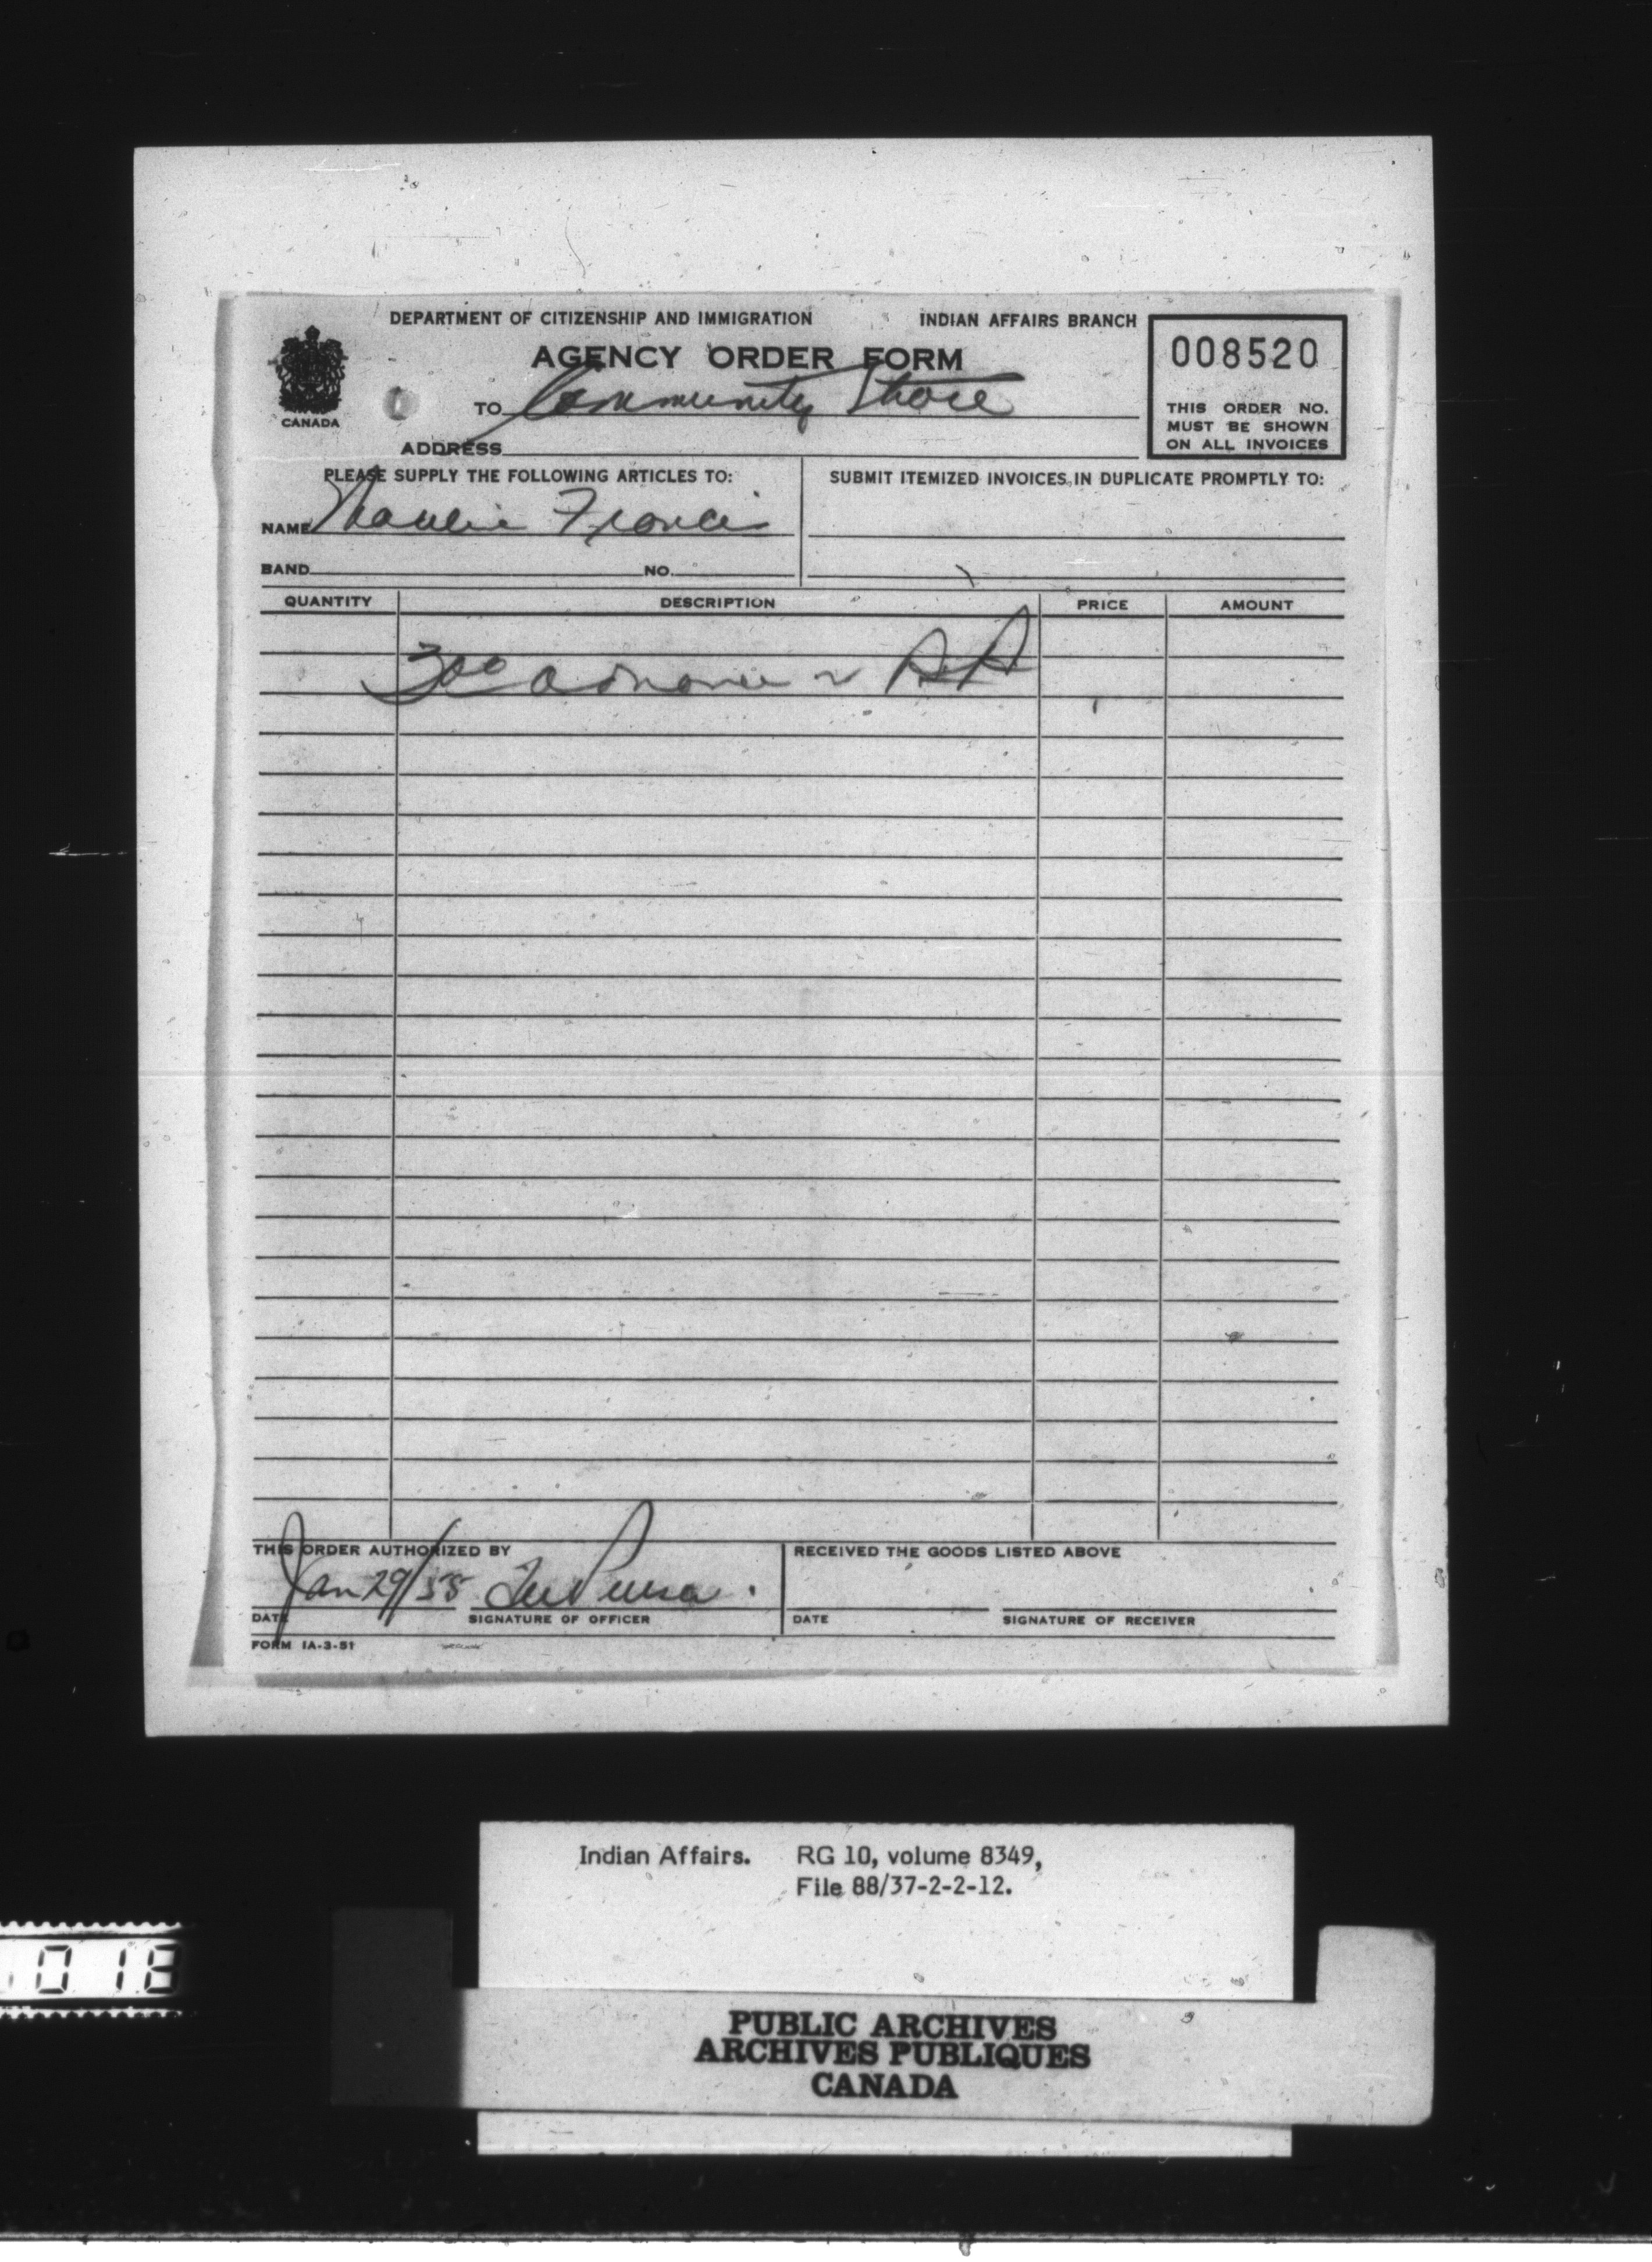 DEPARTMENT OF CITIZENSHIP AND IMMIGRATION INDIAN AFFAIRS BRANCH
AGENCY ORDER FORM
008520
CANADA
TO Community Store
THIS ORDER NO.
MUST BE SHOWN
ON ALL INVOICES
ADDRESS
PLEASE SUPPLY THE FOLLOWING ARTICLES TO:
SUBMIT ITEMIZED INVOICES IN DUPLICATE PROMPTLY TO:
NAME Francis
BAND NO.
QUANTITY DESCRIPTION PRICE AMOUNT
300
THIS ORDER AUTHORIZED BY
RECEIVED THE GOODS LISTED ABOVE
Jan 29/55
DATE SIGNATURE OF OFFICER DATE SIGNATURE OF RECEIVER
FORM IA-3-51
Indian Affairs. RG 10, volume 8349,
File 88/37-2-2-12.
018
PUBLIC ARCHIVES
ARCHIVES PUBLIQUES
CANADA